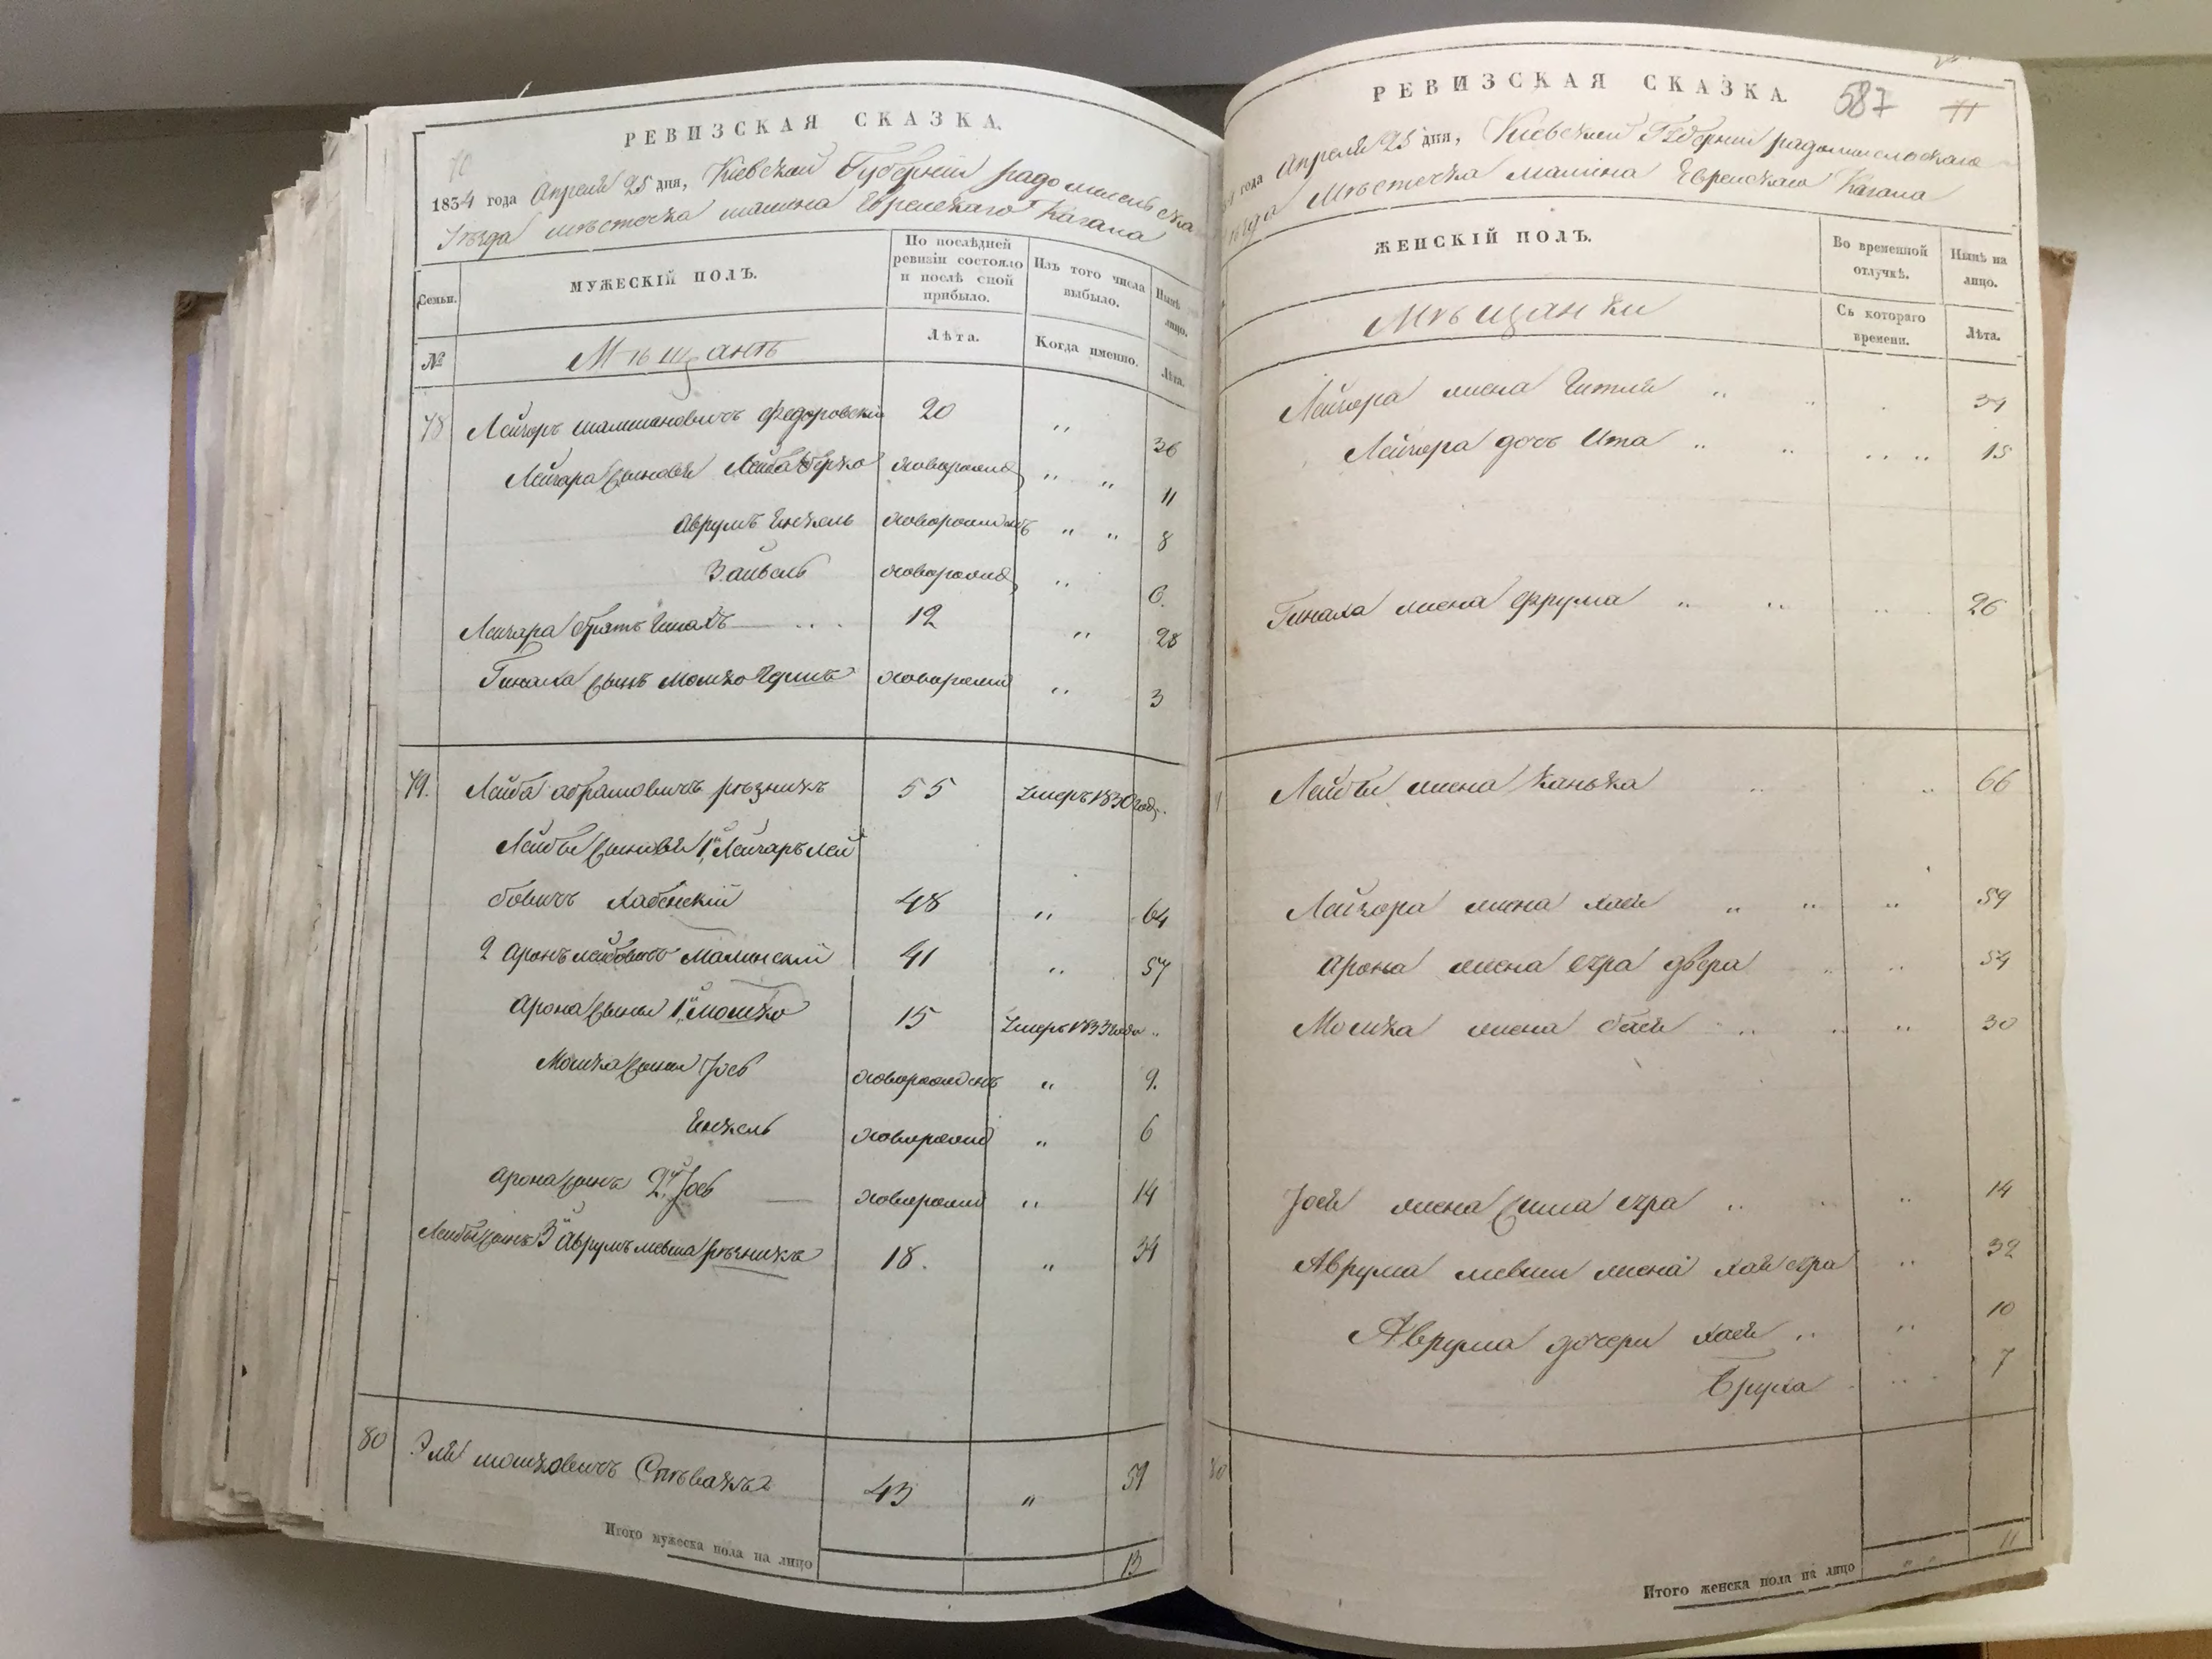 РЕВИЗСКАЯ СКАЗКА.
1834 года Апреля 25 дня, Киевской Губернии радомисльска
Уезда местечка малина Еврейскаго Кагала
Семьи.
МУЖЕСКІЙ ПОЛЪ.
По послѣдней ревизіи состояло и послѣ сной прибыло.
Изъ того числа выбыло.
Нынѣ лицо.
№
Мѣщанъ
Лѣта.
Когда именно.
Лѣта.
78 Лейзоръ Федоровскій 20 " 36
Лейзора сыновья Лейба Берко новорожд " " 11
Аврумъ Янкель новорожденъ " " 8
Зайвель новорожд " 6.
Лейзора братъ 12 " 28
сынъ Мошко новорожд " 3
79. Лейба абрамовичъ рѣзникъ 55 умеръ 1830 год.
Лейбы сыновья 1й Лейзаръ лей
бовичъ Хабенскій 48 " 64
2 Аронъ лейбовичъ Малинскій 41 " 57
Арона сынъ 1й Мошко 15 умеръ 1833 года
Мошка сыны Іось новорожденъ " 9.
Янкель новорожд " 6
Арона сынъ 2й Іось новорожд " 14
Лейбы сынъ 3й Аврумъ мевша рѣзникъ 18. " 34
80 Эля мошковичъ Спѣвакъ 43 " 59
Итого мужеска пола на лицо 13
РЕВИЗСКАЯ СКАЗКА. 587 11
года Апреля 25 дня, Киевской Губернии радомисльскаго
Местечка малина Еврейскаго Кагала
ЖЕНСКІЙ ПОЛЪ.
Во временной отлучкѣ.
Нынѣ на лицо.
Мѣщанки
Съ котораго времени.
Лѣта.
Лейзора жена Гитля " 34
Лейзора дочь Ита " 15
жена Фрума " 26
Лейбы жена Ханька " 66
Лейзора жена Хая " 59
Арона жена двера " 54
Мошка жена бася " 30
Іося жена сима " 14
Аврума мевши жена хая " 32
Аврума дочери хая " 10
Бруха " 7
80
Итого женска пола на лицо " 11